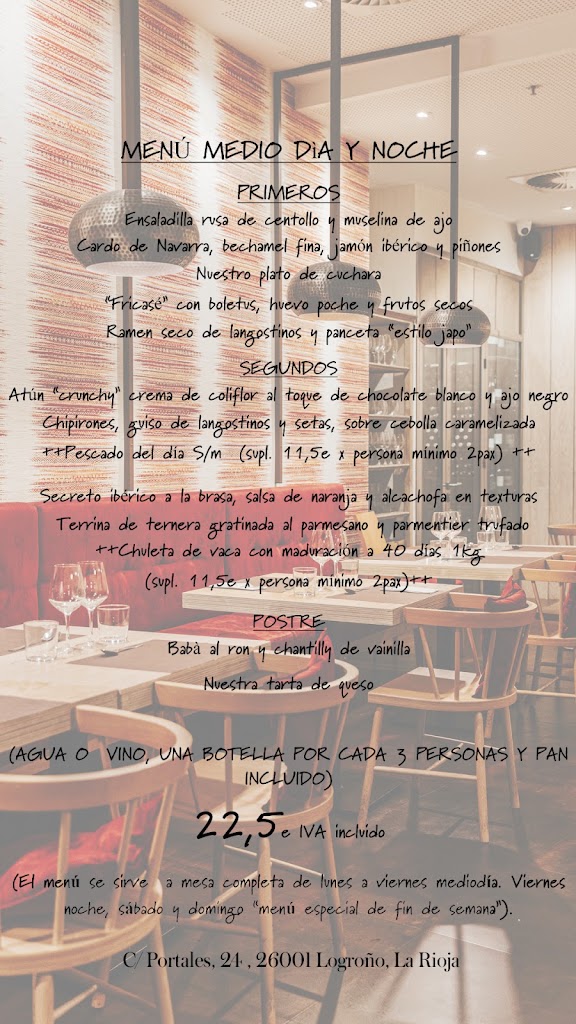 MENÚ MEDIO DiA Y NOCHE
PRIMEROS
Ensaladilla rusa de centollo y muselina de ajo
Cardo de Navarra, bechamel fina, jamón ibérico y piñones
Nuestro plato de cuchara
"Fricasé" con boletus, huevo poche y frutos secos
Ramen seco de langostinos y panceta "estilo japo"
SEGUNDOS
Atún "crunchy" crema de coliflor al toque de chocolate blanco y ajo negro
Chipirones, guiso de langostinos y setas, sobre cebolla caramelizada
++Pescado del dia S/m (supl. 11,5e x persona minimo 2pax) ++
Secreto ibérico a la brasa, salsa de naranja y alcachofa en texturas
Terrina de ternera gratinada al parmesano y parmentier trufado
++Chuleta de vaca con maduración a 40 dias 1kg
(supl. 11,5e x persona minimo 2pax)++
POSTRE
Babà al ron y chantilly de vainilla
Nuestra tarta de queso
(AGUA O VINO, UNA BOTELLA POR CADA 3 PERSONAS Y PAN
INCLUIDO)
22,5e IVA incluido
(El menú se sirve a mesa completa de lunes a viernes mediodía. Viernes
noche, sábado y domingo "menú especial de fin de semana").
C/ Portales, 24 , 26001 Logroño, La Rioja